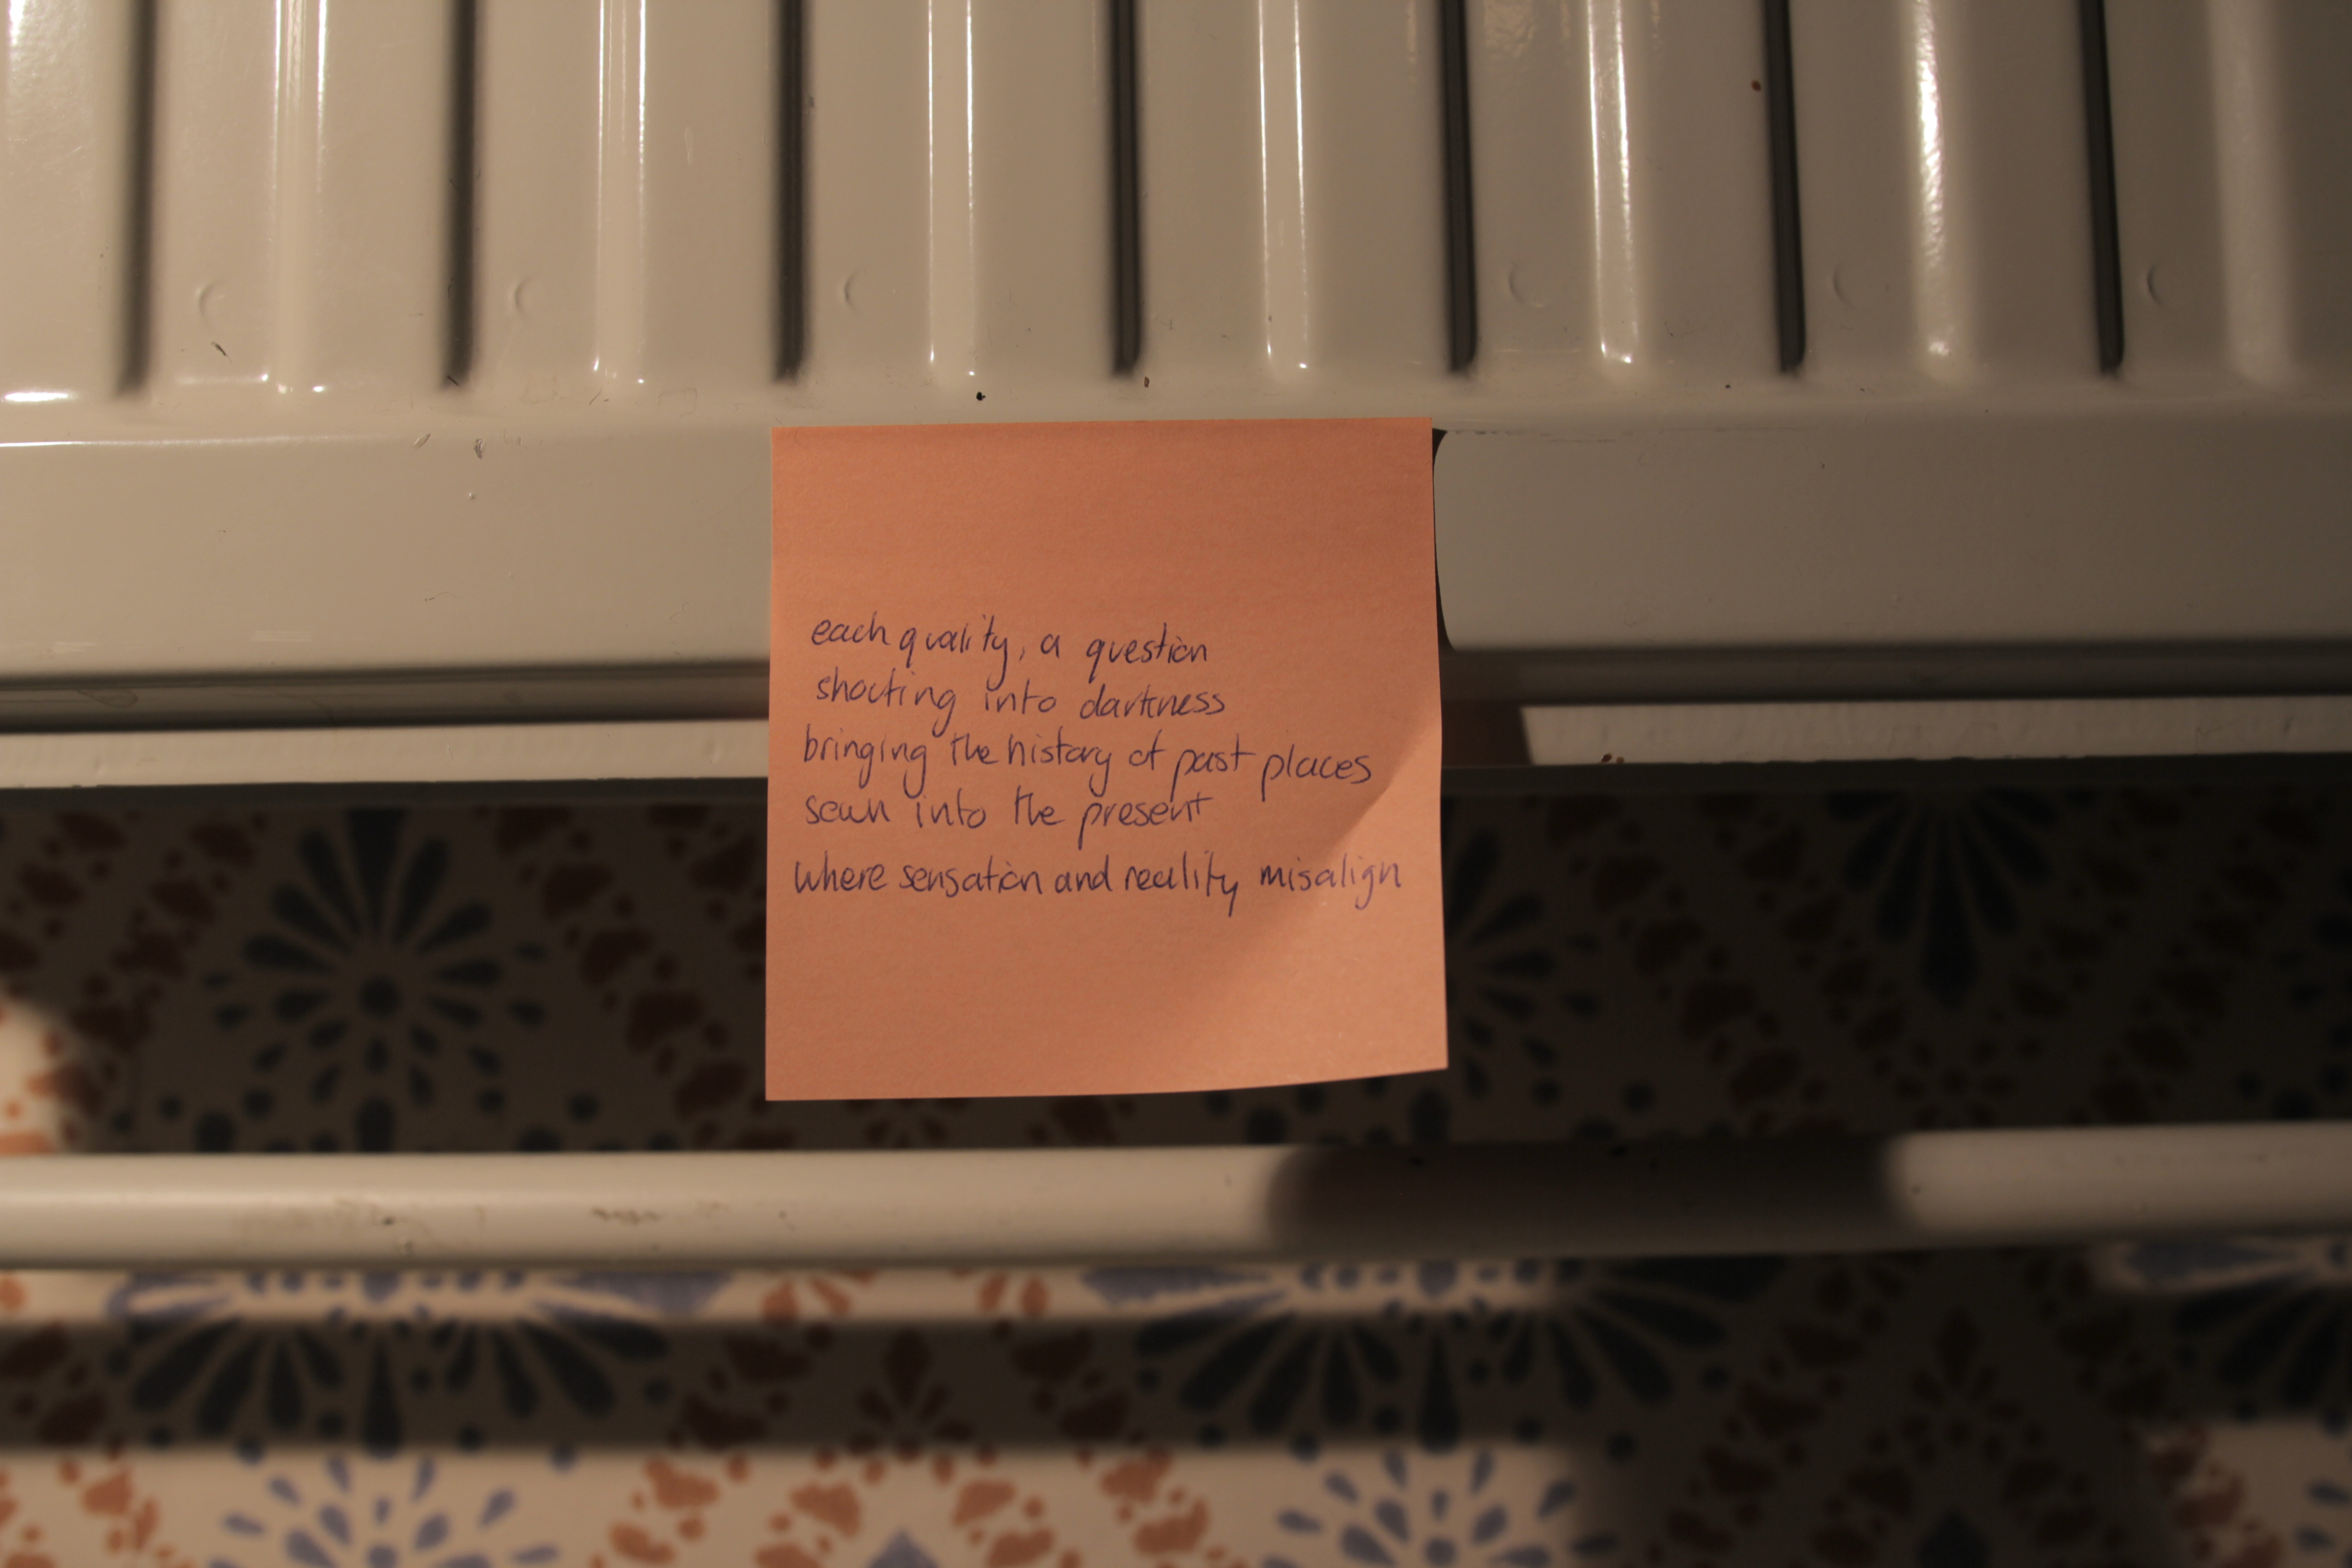 each quality, a question
shooting into darkness
bringing the history of past places
sewn into the present
where sensation and reality misalign